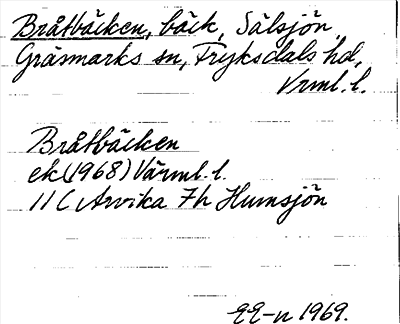 Bråtbäcken, bäck, Sälsjön,
Gräsmarks sn, Fryksdals hd,
Vrml. l.
Bråtbäcken
ek (1968) Värml. l.
11 C Arvika 7h Humsjön
1969.